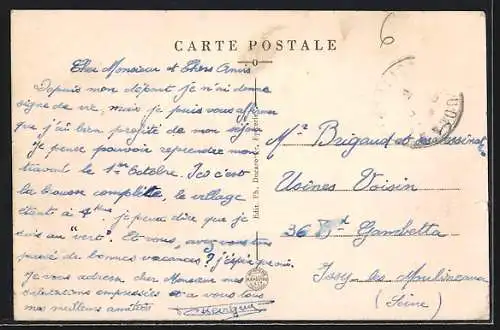 CARTE POSTALE
Cher Monsieur et Chers Amis
Depuis mon départ je n'ai donné
signe de vie, mais je puis vous affirmer
que j'ai bien profité de mon séjour
Je pense pouvoir reprendre mon
travail le 1er Octobre. Ici c'est
la cousse complète, le village
étant à 4 km. je peux dire que je
suis au "vert". Et vous, avez vous
passé de bonnes vacances? j'espère
Je vous adresse cher Monsieur mes
salutations empressées et à vous tous
mes meilleurs amitiés
Edit. Ph.
6
Mr Brigaud et
Usines Voisin
36 Bd Gambetta
Issy-les-Moulineaux
(Seine)